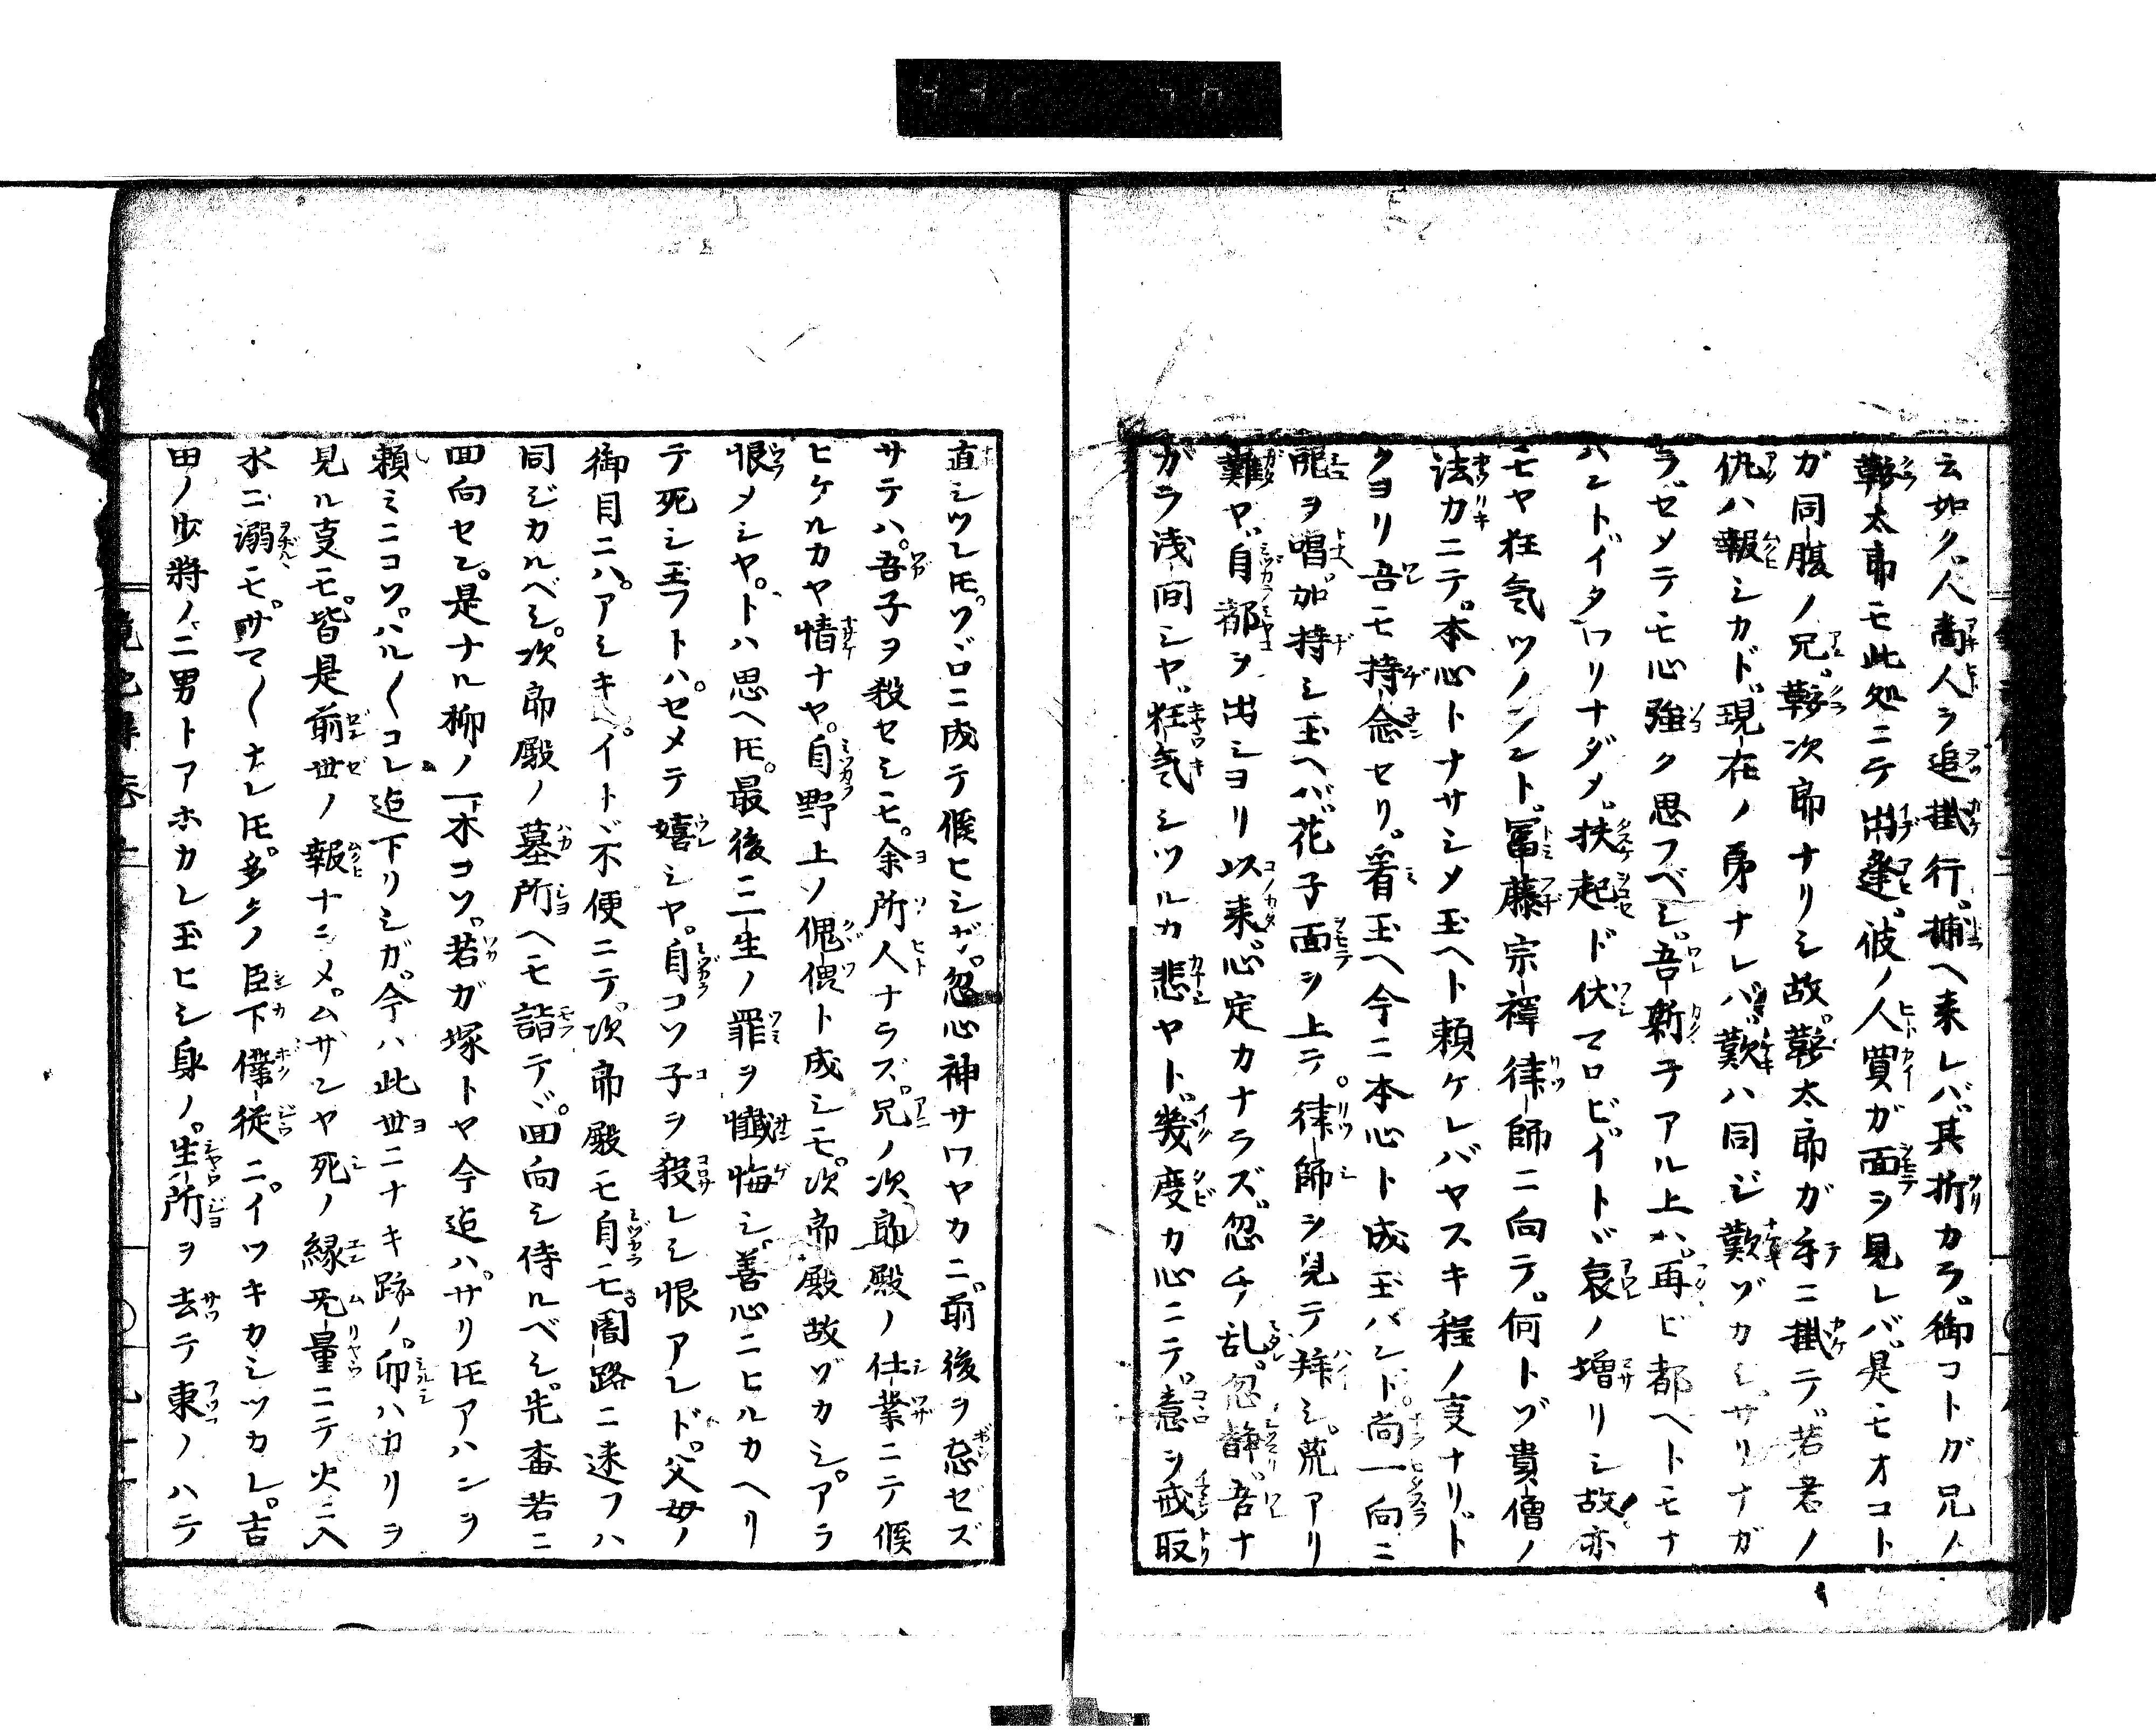 云如ク。人商人ヲ追掛行。捕ヘ来レバ。其折カラ。御コトガ兄ノ
鞍太郎モ此処ニテ出逢。彼ノ人買ガ面ヲ見レバ。是モオコト
ガ同腹ノ兄。鞍次郎ナリシ故。鞍太郎ガ手ニ掛テ。若君ノ
仇ハ報シカド。現在ノ弟ナレバ。歎ハ同ジ歎ヅカシ。サリナガ
ラ。セメテモ心強ク思フベシ。吾斬テアル上ハ。再ビ都ヘトモナ
ハントイタワリナダメ。扶起ド伏マロビイトヾ哀ノ増リシ故亦
モヤ狂気ツノンント。冨藤宗禅律師ニ向テ。何トゾ貴僧ノ
法力ニテ。本心トナサシメ玉ヘト頼ケレバヤスキ程ノ叓ナリ。ト
クヨリ吾モ持念セリ。看玉ヘ今ニ本心ト成玉バント。尚一向ニ
呪ヲ唱。加持シ玉ヘバ。花子面ヲ上テ。律師ヲ見テ拝シ。荒アリ
難ヤ。自都ヲ出シヨリ以来。心定カナラズ。忽チ乱。忽静。吾ナ
ガラ浅間シヤ。狂気シツルカ悲ヤト。幾度カ心ニテ。意ヲ戒取
直シツレ𪜈。ソゾロニ成テ候ヒシガ。忽心神サワヤカニ。前後ヲ忘ゼズ
サテハ。吾子ヲ殺セシモ。余所人ナラズ。兄ノ次郎殿ノ仕業ニテ候
ヒケルカヤ情ナヤ。自野上ソ傀儡ト成シモ。次郎殿故ヅカシ。アラ
恨メシヤ。トハ思ヘ𪜈。最後ニ一生ノ罪ヲ懺悔シ。善心ニヒルカヘリ
テ死シ玉フトハ。セメテ嬉シヤ。自コソ子ヲ殺レシ恨アレド。父母ノ
御目ニハ。アシキヘ。イトヾ不便ニテ。次郎殿モ自モ。闇路ニ迷フハ
同ジカルベシ。次郎殿ノ墓所ヘモ詣テ。回向シ侍ルベシ。先𡉏若ニ
回向セン。是ナル柳ノ一木コソ。若ガ塚トヤ今迠ハ。サリ𪜈アハンヲ
頼ミニコソ。ハル〱コレ迠下リシガ。今ハ此世ニナキ跡ノ。印ハカリヲ
見ル叓モ。皆是前世ノ報ナラメ。ムザンヤ死ノ縁无量ニテ火ニ入
水ニ溺モ。サマ〱ナレ𪜈。多クノ臣下僕従ニ。イツキカシツカレ。吉
田ノ少将ノ二男トアホカレ玉ヒシ身ノ。生所ヲ去テ東ノハテ